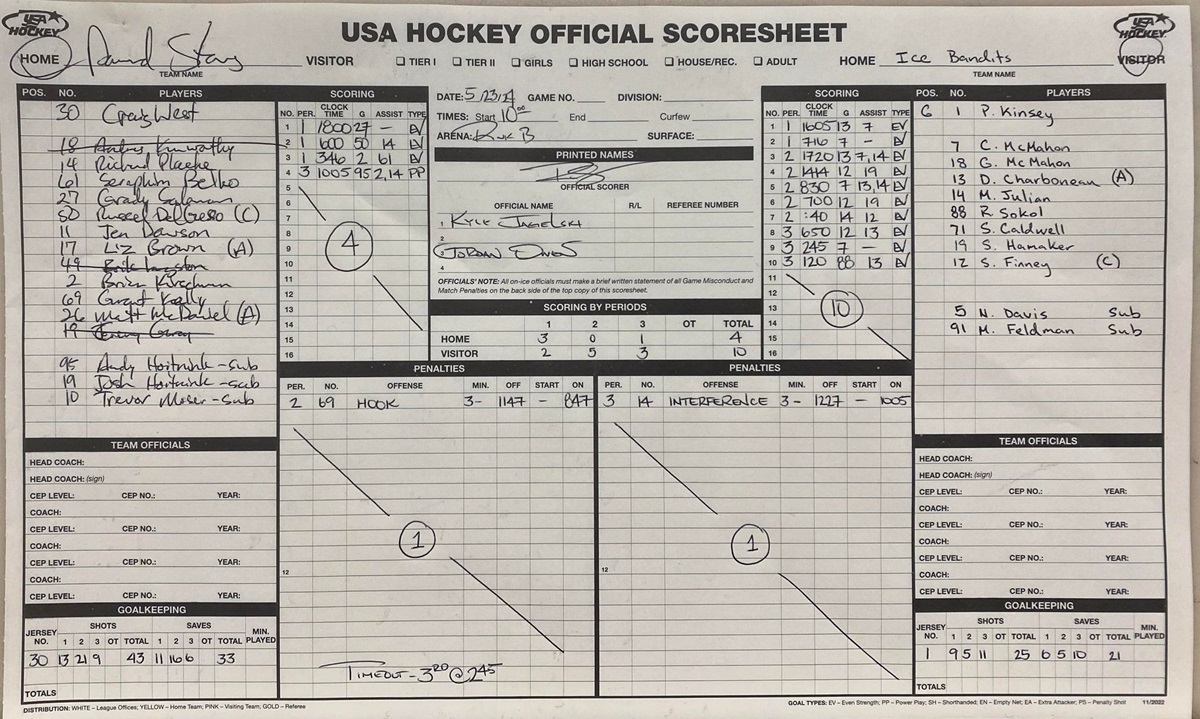 USA HOCKEY
USA HOCKEY OFFICIAL SCORESHEET
USA HOCKEY
HOME
VISITOR ☐ TIER I ☐ TIER II ☐ GIRLS ☐ HIGH SCHOOL ☐ HOUSE/REC. ☐ ADULT HOME Ice Bandits VISITOR
TEAM NAME
TEAM NAME
POS. NO. PLAYERS
30 Craig West
18
14 Richard
61 Seraphim
27 Grady
50 (C)
11 Jen Dawson
17 Liz Brown (A)
49
2 Brian Kirschman
69 Grant Kelly
26 Matt McDaniel (A)
19
95 Andy - sub
19 Josh - sub
10 Trevor Moser - sub
SCORING
NO. PER. CLOCK TIME G ASSIST TYPE
1 1 1800 27 - EV
2 1 600 50 14 EV
3 1 346 2 61 EV
4 3 1005 95 2,14 PP
5
6
7
8
9
10
11
12
13
14
15
16
4
DATE: 5/23/24 GAME NO. DIVISION:
TIMES: Start 10:00 End Curfew
ARENA: Rink B SURFACE:
PRINTED NAMES
OFFICIAL SCORER
OFFICIAL NAME R/L REFEREE NUMBER
1 Kyle
2
3 Jordan
4
OFFICIALS' NOTE: All on-ice officials must make a brief written statement of all Game Misconduct and
Match Penalties on the back side of the top copy of this scoresheet.
SCORING BY PERIODS
1 2 3 OT TOTAL
HOME 3 0 1 4
VISITOR 2 5 3 10
SCORING
NO. PER. CLOCK TIME G ASSIST TYPE
1 1 1605 13 7 EV
2 1 716 7 - EV
3 2 1720 13 7,14 EV
4 2 1414 12 19 EV
5 2 830 7 13,14 EV
6 2 700 12 19 EV
7 2 :40 14 12 EV
8 3 650 12 13 EV
9 3 245 7 - EV
10 3 120 88 13 EV
11
12
13
14
15
16
10
POS. NO. PLAYERS
G 1 P. Kinsey
7 C. McMahon
18 G. McMahon
13 D. Charboneau (A)
14 M. Julian
88 R. Sokol
71 S. Caldwell
19 S. Hamaker
12 S. Finney (C)
5 N. Davis Sub
91 M. Feldman Sub
PENALTIES
PER. NO. OFFENSE MIN. OFF START ON
2 69 HOOK 3- 1147 - 847
12
1
TIMEOUT - 3RD @ 245
PENALTIES
PER. NO. OFFENSE MIN. OFF START ON
3 14 INTERFERENCE 3- 1227 - 1005
12
1
TEAM OFFICIALS
HEAD COACH:
HEAD COACH: (sign)
CEP LEVEL: CEP NO.: YEAR:
COACH:
CEP LEVEL: CEP NO.: YEAR:
COACH:
CEP LEVEL: CEP NO.: YEAR:
COACH:
CEP LEVEL: CEP NO.: YEAR:
GOALKEEPING
JERSEY NO. SHOTS 1 2 3 OT TOTAL SAVES 1 2 3 OT TOTAL MIN. PLAYED
30 13 21 9 43 11 16 6 33
TOTALS
TEAM OFFICIALS
HEAD COACH:
HEAD COACH: (sign)
CEP LEVEL: CEP NO.: YEAR:
COACH:
CEP LEVEL: CEP NO.: YEAR:
COACH:
CEP LEVEL: CEP NO.: YEAR:
COACH:
CEP LEVEL: CEP NO.: YEAR:
GOALKEEPING
JERSEY NO. SHOTS 1 2 3 OT TOTAL SAVES 1 2 3 OT TOTAL MIN. PLAYED
1 9 5 11 25 6 5 10 21
TOTALS
DISTRIBUTION: WHITE – League Offices; YELLOW – Home Team; PINK – Visiting Team; GOLD – Referee
GOAL TYPES: EV – Even Strength; PP – Power Play; SH – Shorthanded; EN – Empty Net; EA – Extra Attacker; PS – Penalty Shot 11/2022